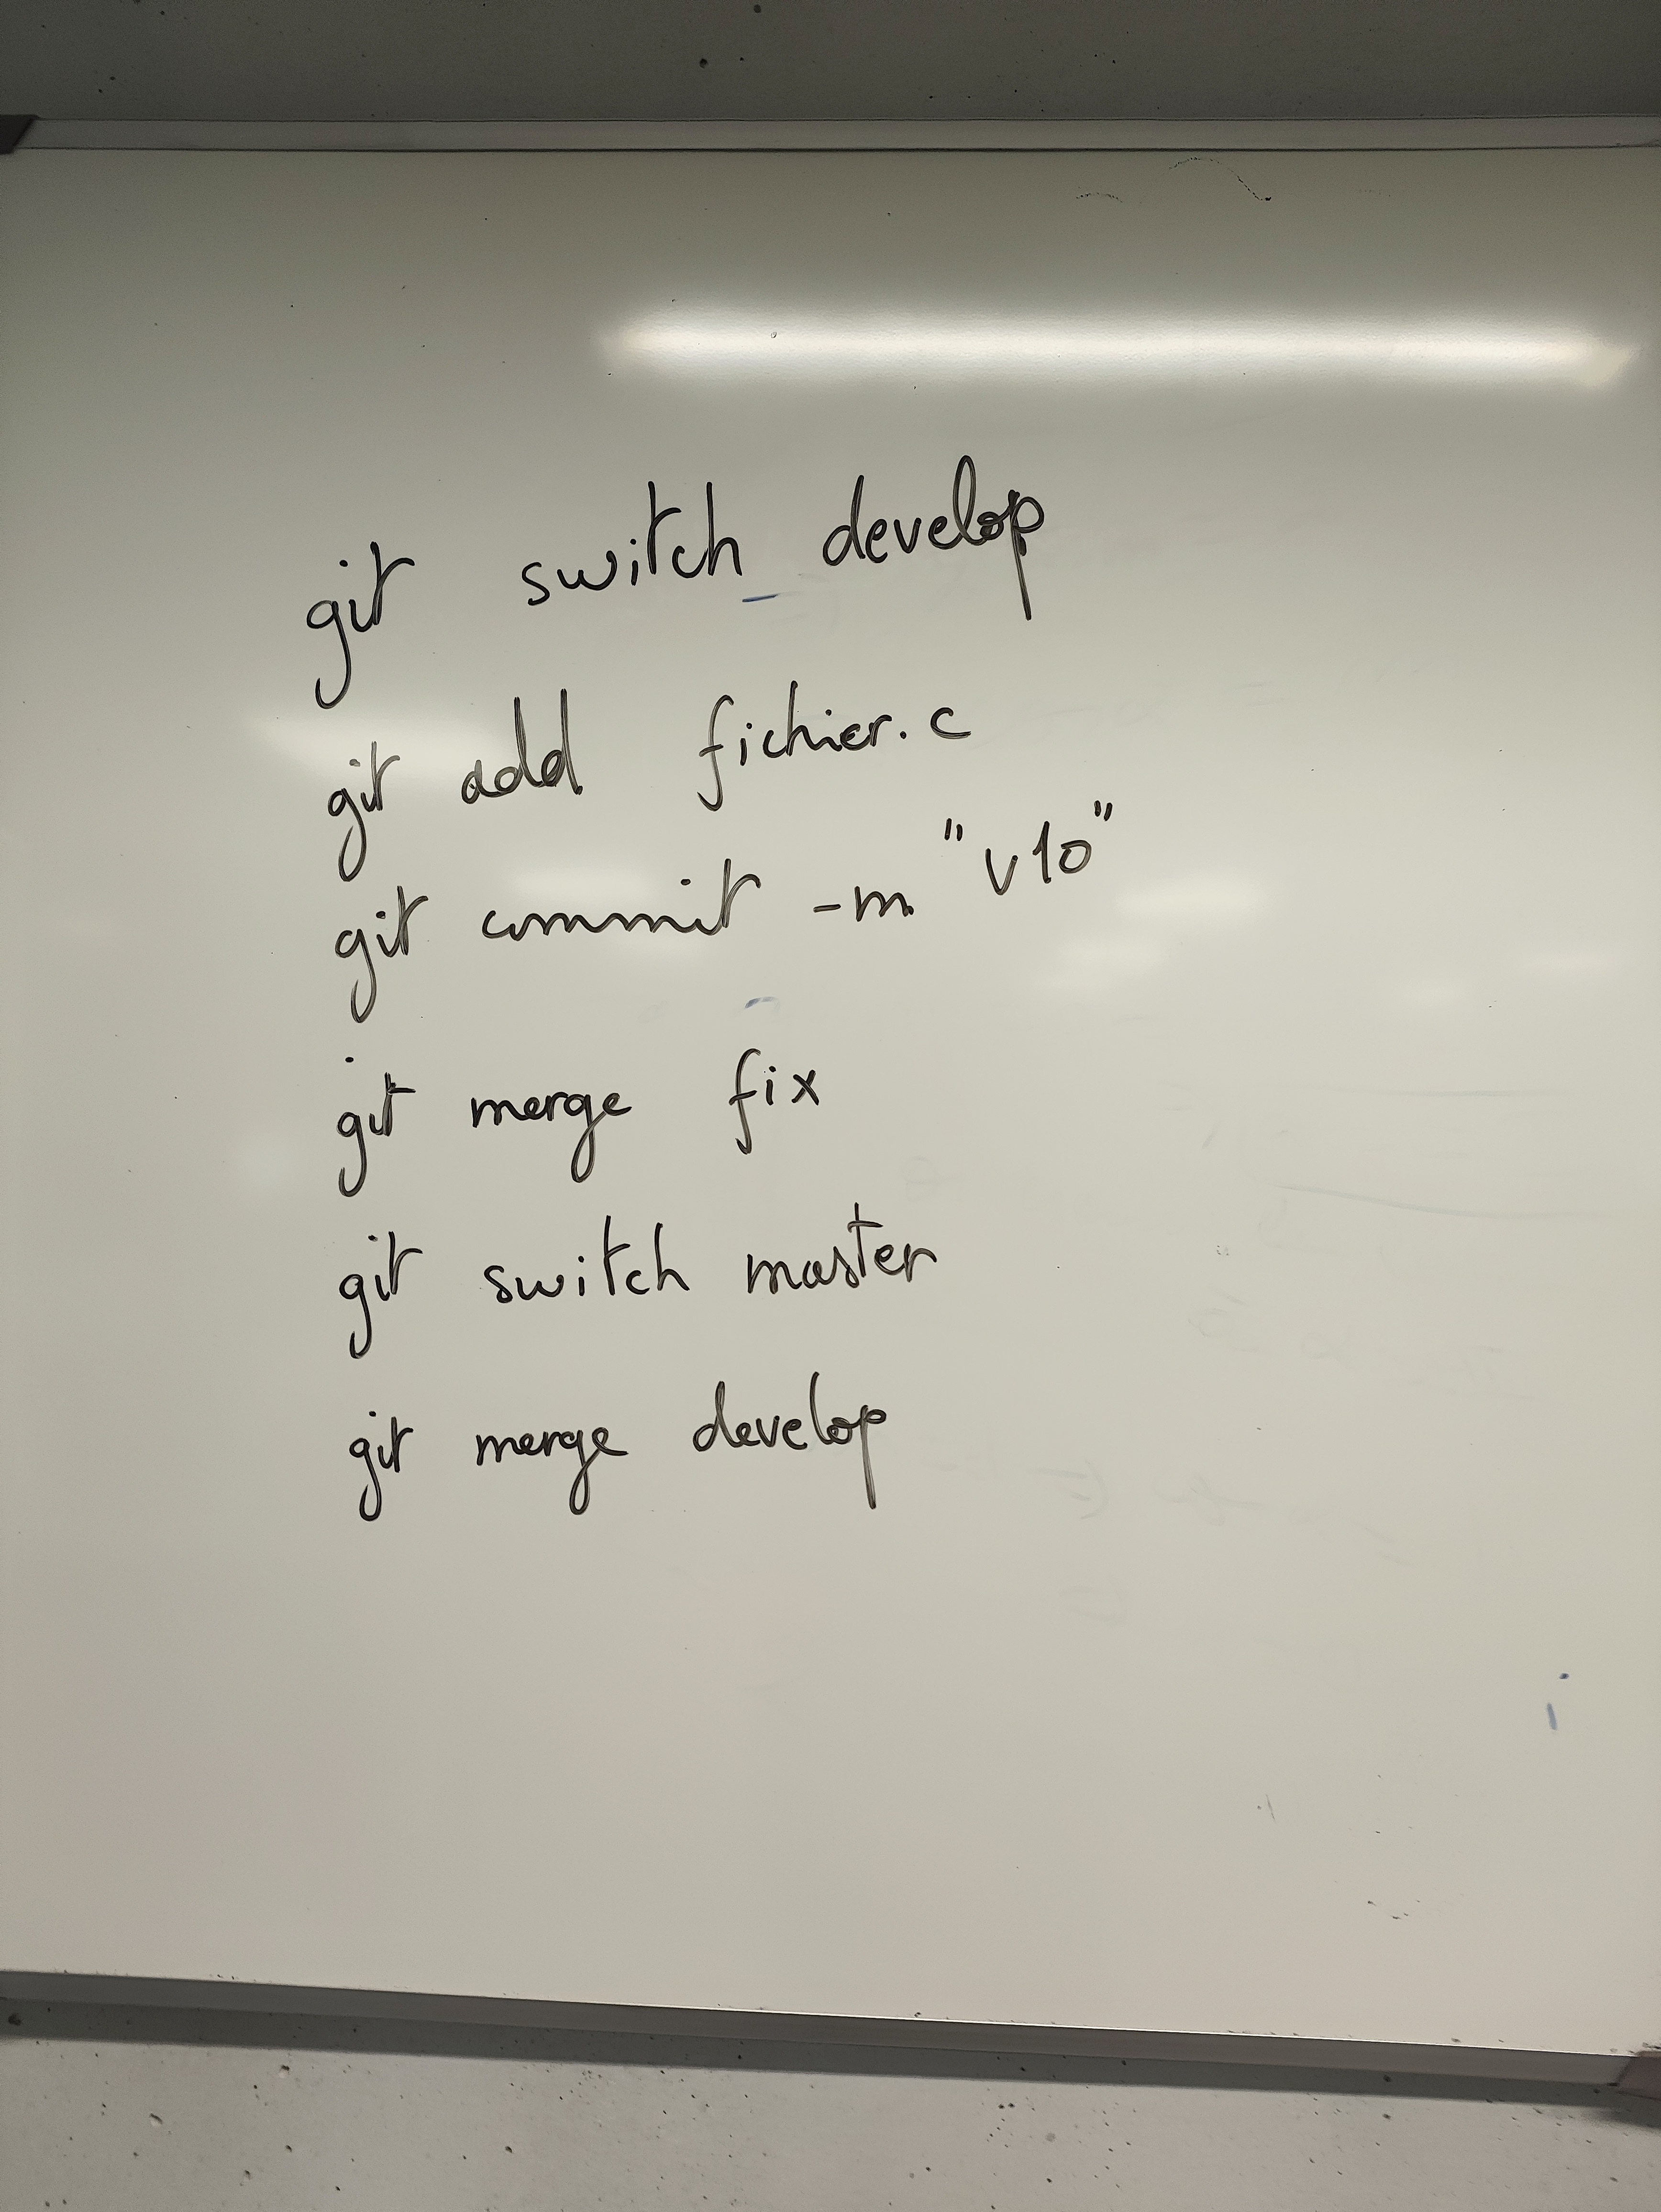 git switch develop
git add fichier.c
git commit -m "v10"
git merge fix
git switch master
git merge develop